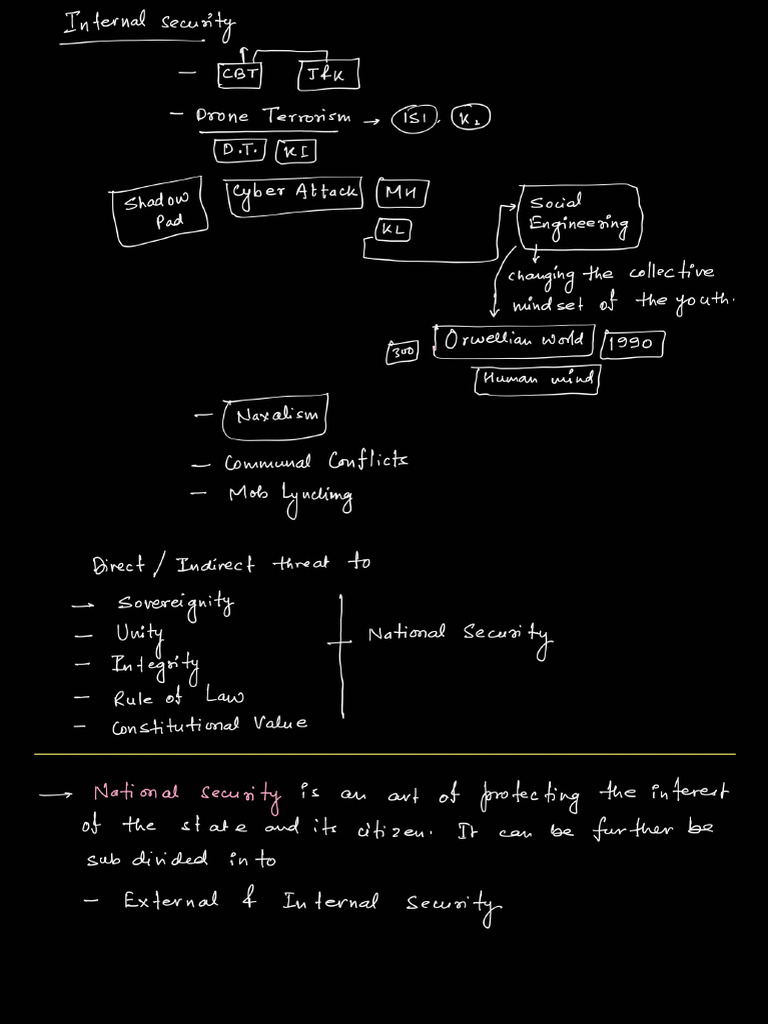 Internal security
- CBT J&K
- Drone Terrorism → ISI, K2
D.T. KI
Shadow Pad
Cyber Attack MH
KL
Social Engineering
changing the collective
mindset of the youth.
300 Orwellian world 1990
Human mind
- Naxalism
- Communal Conflicts
- Mob Lynching
Direct / Indirect threat to
→ Sovereignity
- Unity
- Integrity
- Rule of Law
- Constitutional Value
National Security
→ National security is an art of protecting the interest
of the state and its citizen. It can be further be
sub divided in to
- External & Internal Security